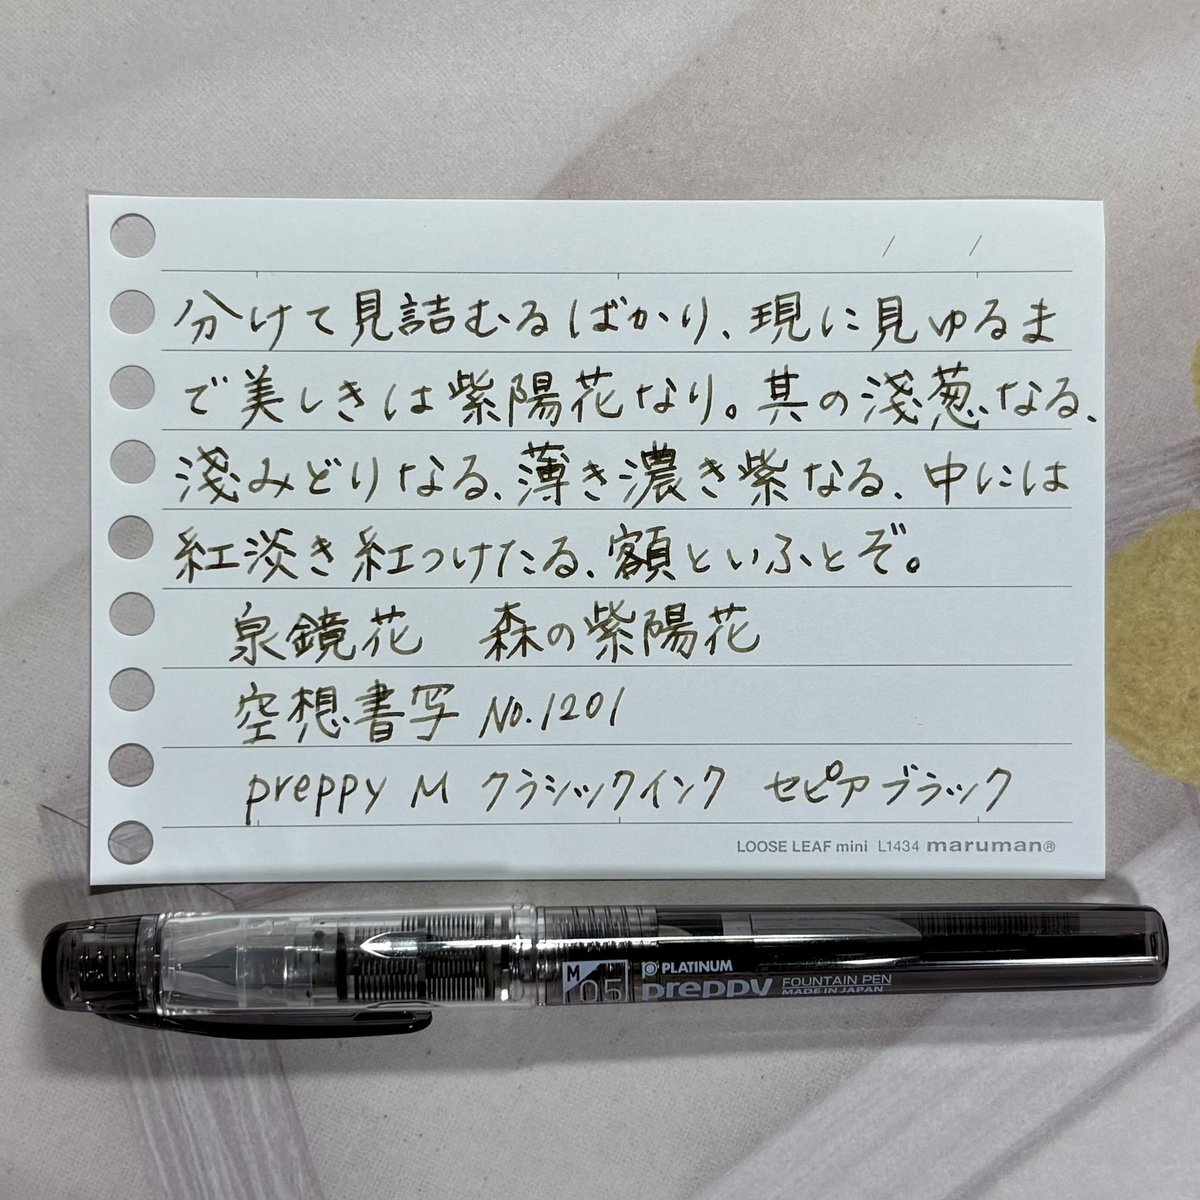 分けて見詰むるばかり、現に見ゆるま
で美しきは紫陽花なり。其の淺葱なる、
淺みどりなる、薄き濃き紫なる、中には
紅淡き紅つけたる、額といふとぞ。
泉鏡花　森の紫陽花
空想書写 No.1201
preppy M クラシックインク　セピアブラック
LOOSE LEAF mini L1434 maruman®
M 05 PLATINUM preppy FOUNTAIN PEN MADE IN JAPAN